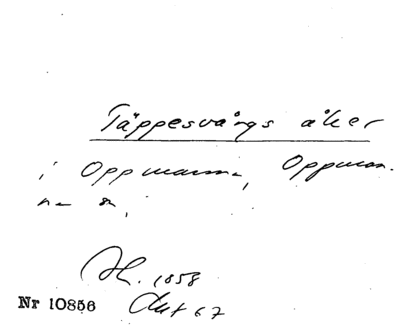 Täppesvångs åker
i Oppmanna, Oppman-
na sn,
1858
Nr 10856 Akt 67